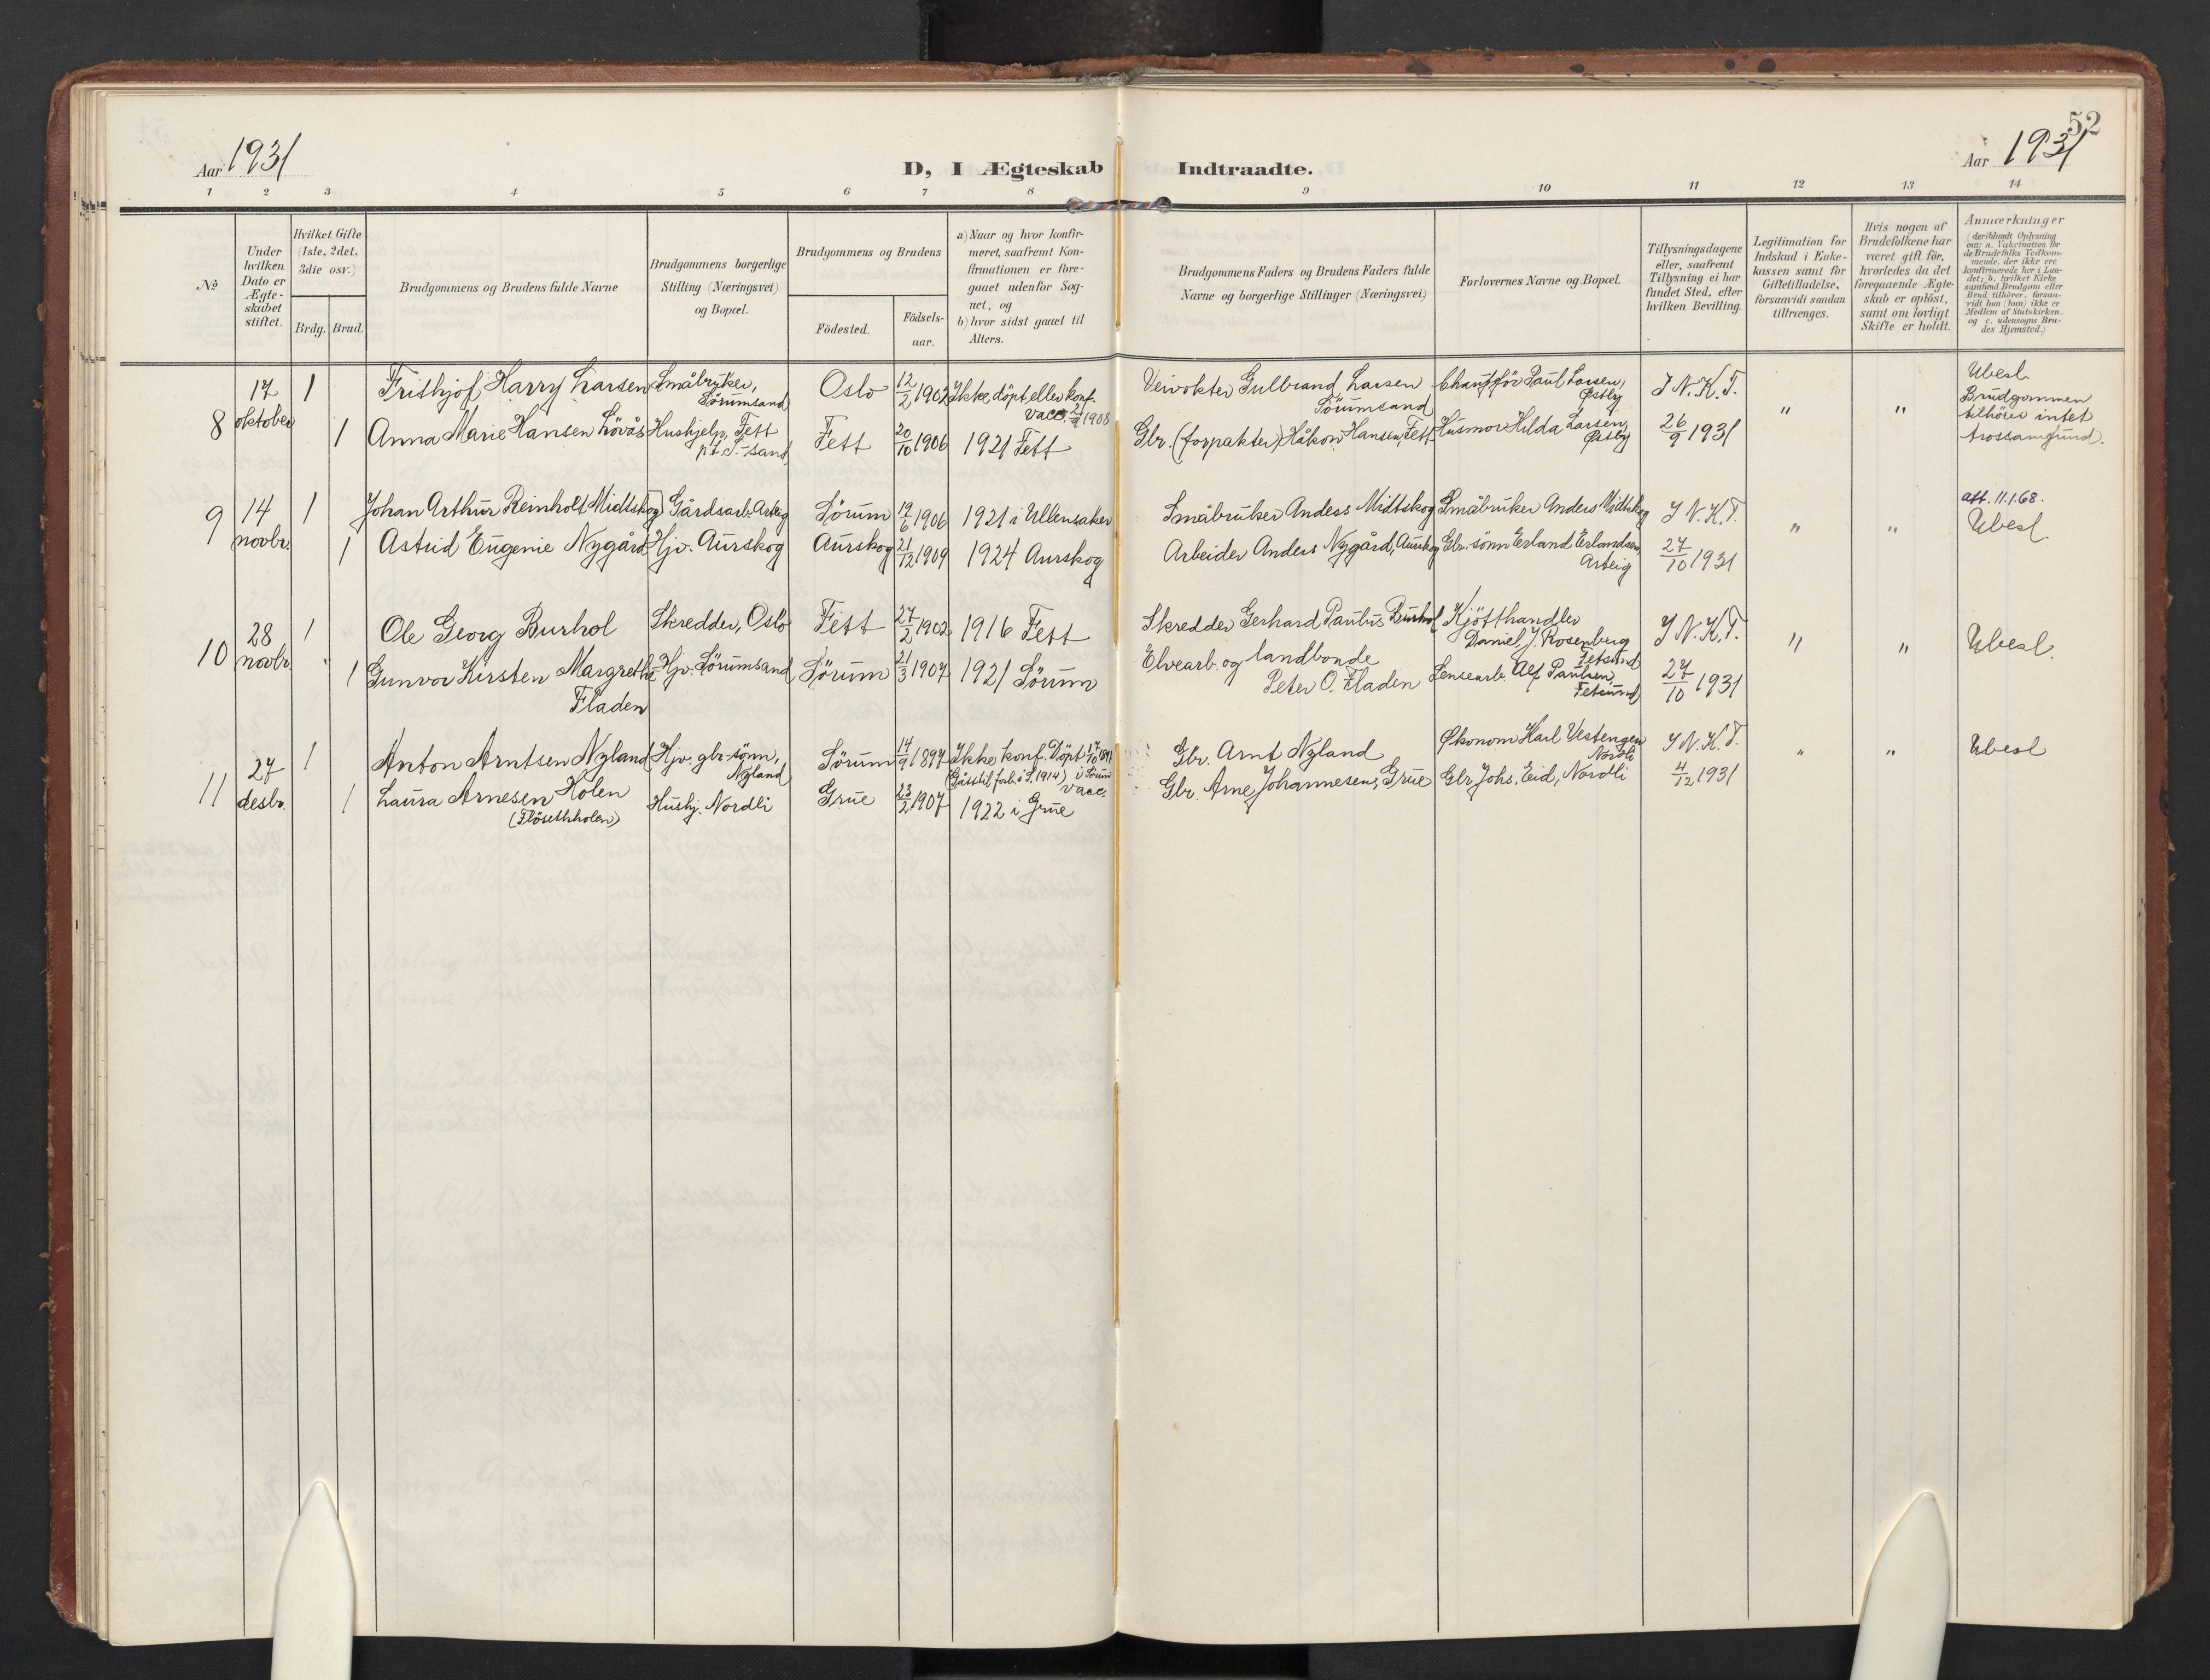 52
Aar 1931
D, I Ægteskab Indtraadte.
Aar 1931
1 2 3 4 5 6 7 8 9 10 11 12 13 14
No
Under hvilken Dato er Ægte-skabet stiftet.
Hvilket Gifte (1ste, 2det, 3die osv.)
Brdg. Brud.
Brudgommens og Brudens fulde Navne
Brudgommens borgerlige Stilling (Næringsvei) og Bopæl.
Brudgommens og Brudens
Födested.
Födsels-aar.
a) Naar og hvor konfir-meret, saafremt Kon-firmationen er fore-gaaet udenfor Sog-net, og
b) hvor sidst gaaet til Alters.
Brudgommens Faders og Brudens Faders fulde Navne og borgerlige Stillinger (Næringsvei)
Forlovernes Navne og Bopæl.
Tillysningsdagene eller, saafremt Tillysning ei har fundet Sted, efter hvilken Bevilling.
Legitimation for Indskud i Enke-kassen samt for Giftetilladelse, forsaavidt saadan tiltrænges.
Hvis nogen af Brudefolkene har været gift för, hvorledes da det foregaaende Ægte-skab er oplöst, samt om lovligt Skifte er holdt.
Anmærkninger
(deriblandt Oplysning om: a. Vakcination for de Brudefolks Vedkom-mende, der ikke ere konfirmerede her i Lan-det; b. hvilket Kirke-samfund Brudgom eller Brud tilhörer, forsaa-vidt han (hun) ikke er Medlem af Statskirken. og c. udensogns Bru-des Hjemsted.)
8 17 oktober 1 Frithjof Harry Larsen Småbruker, Sörumsand Oslo 12/2 1902 Ikke döpt eller konf. vacc. 1908 Veivokter Gulbrand Larsen Sörumsand Chauffför Paul Larsen, Østby I N.K.T. " " Ubesl. Brudgommen tilhörer intet trossamfund.
1 Anna Marie Hansen Lövås Hushjelp, Fett p.t. S.-sand Fett 20/10 1906 1921 Fett Gbr. (forpakter) Håkon Hansen, Fett Husmor Hilda Larsen, Østby 26/9 1931
9 14 novbr. 1 Johan Arthur Reinholt Midtskog Gårdsarb. Arteig Sörum 19/6 1906 1921 i Ullensaker Småbruker Anders Midtskog Småbruker Anders Midtskog I N.K.T. " " att. 11.1.68. Ubesl.
1 Astrid Eugenie Nygård Hjv. Aurskog Aurskog 21/12 1909 1924 Aurskog Arbeider Anders Nygård, Aurskog Gbr.sönn Erland Erlandsen, Arteig 27/10 1931
10 28 novbr. 1 Ole Georg Burhol Skredder, Oslo Fett 27/2 1902 1916 Fett Skredder Gerhard Paulus Burhol Kjötthandler Daniel J. Rosenberg Fetsund I N.K.T. " " Ubesl.
1 Gunvor Kirsten Margrethe Fladen Hjv. Sörumsand Sörum 21/3 1907 1921 Sörum Elvearb. og landbonde Peter O. Fladen Lensearb. Alf Paulsen, Fetsund 27/10 1931
11 27 desbr. 1 Anton Arntsen Nyland Hjv. gbr.sönn, Nyland Sörum 14/9 1897 Ikke konf. Döpt 17/10 1897 i Sörum vacc. Gbr. Arnt Nyland Økonom Karl Vestengen Nordli I N.K.T. " " Ubesl
1 Laura Arnesen Holen (Flösethholen) Hushj. Nordli Grue 23/2 1907 1922 i Grue Gbr. Arne Johannesen, Grue Gbr. Johs. Eid, Nordli 4/12 1931